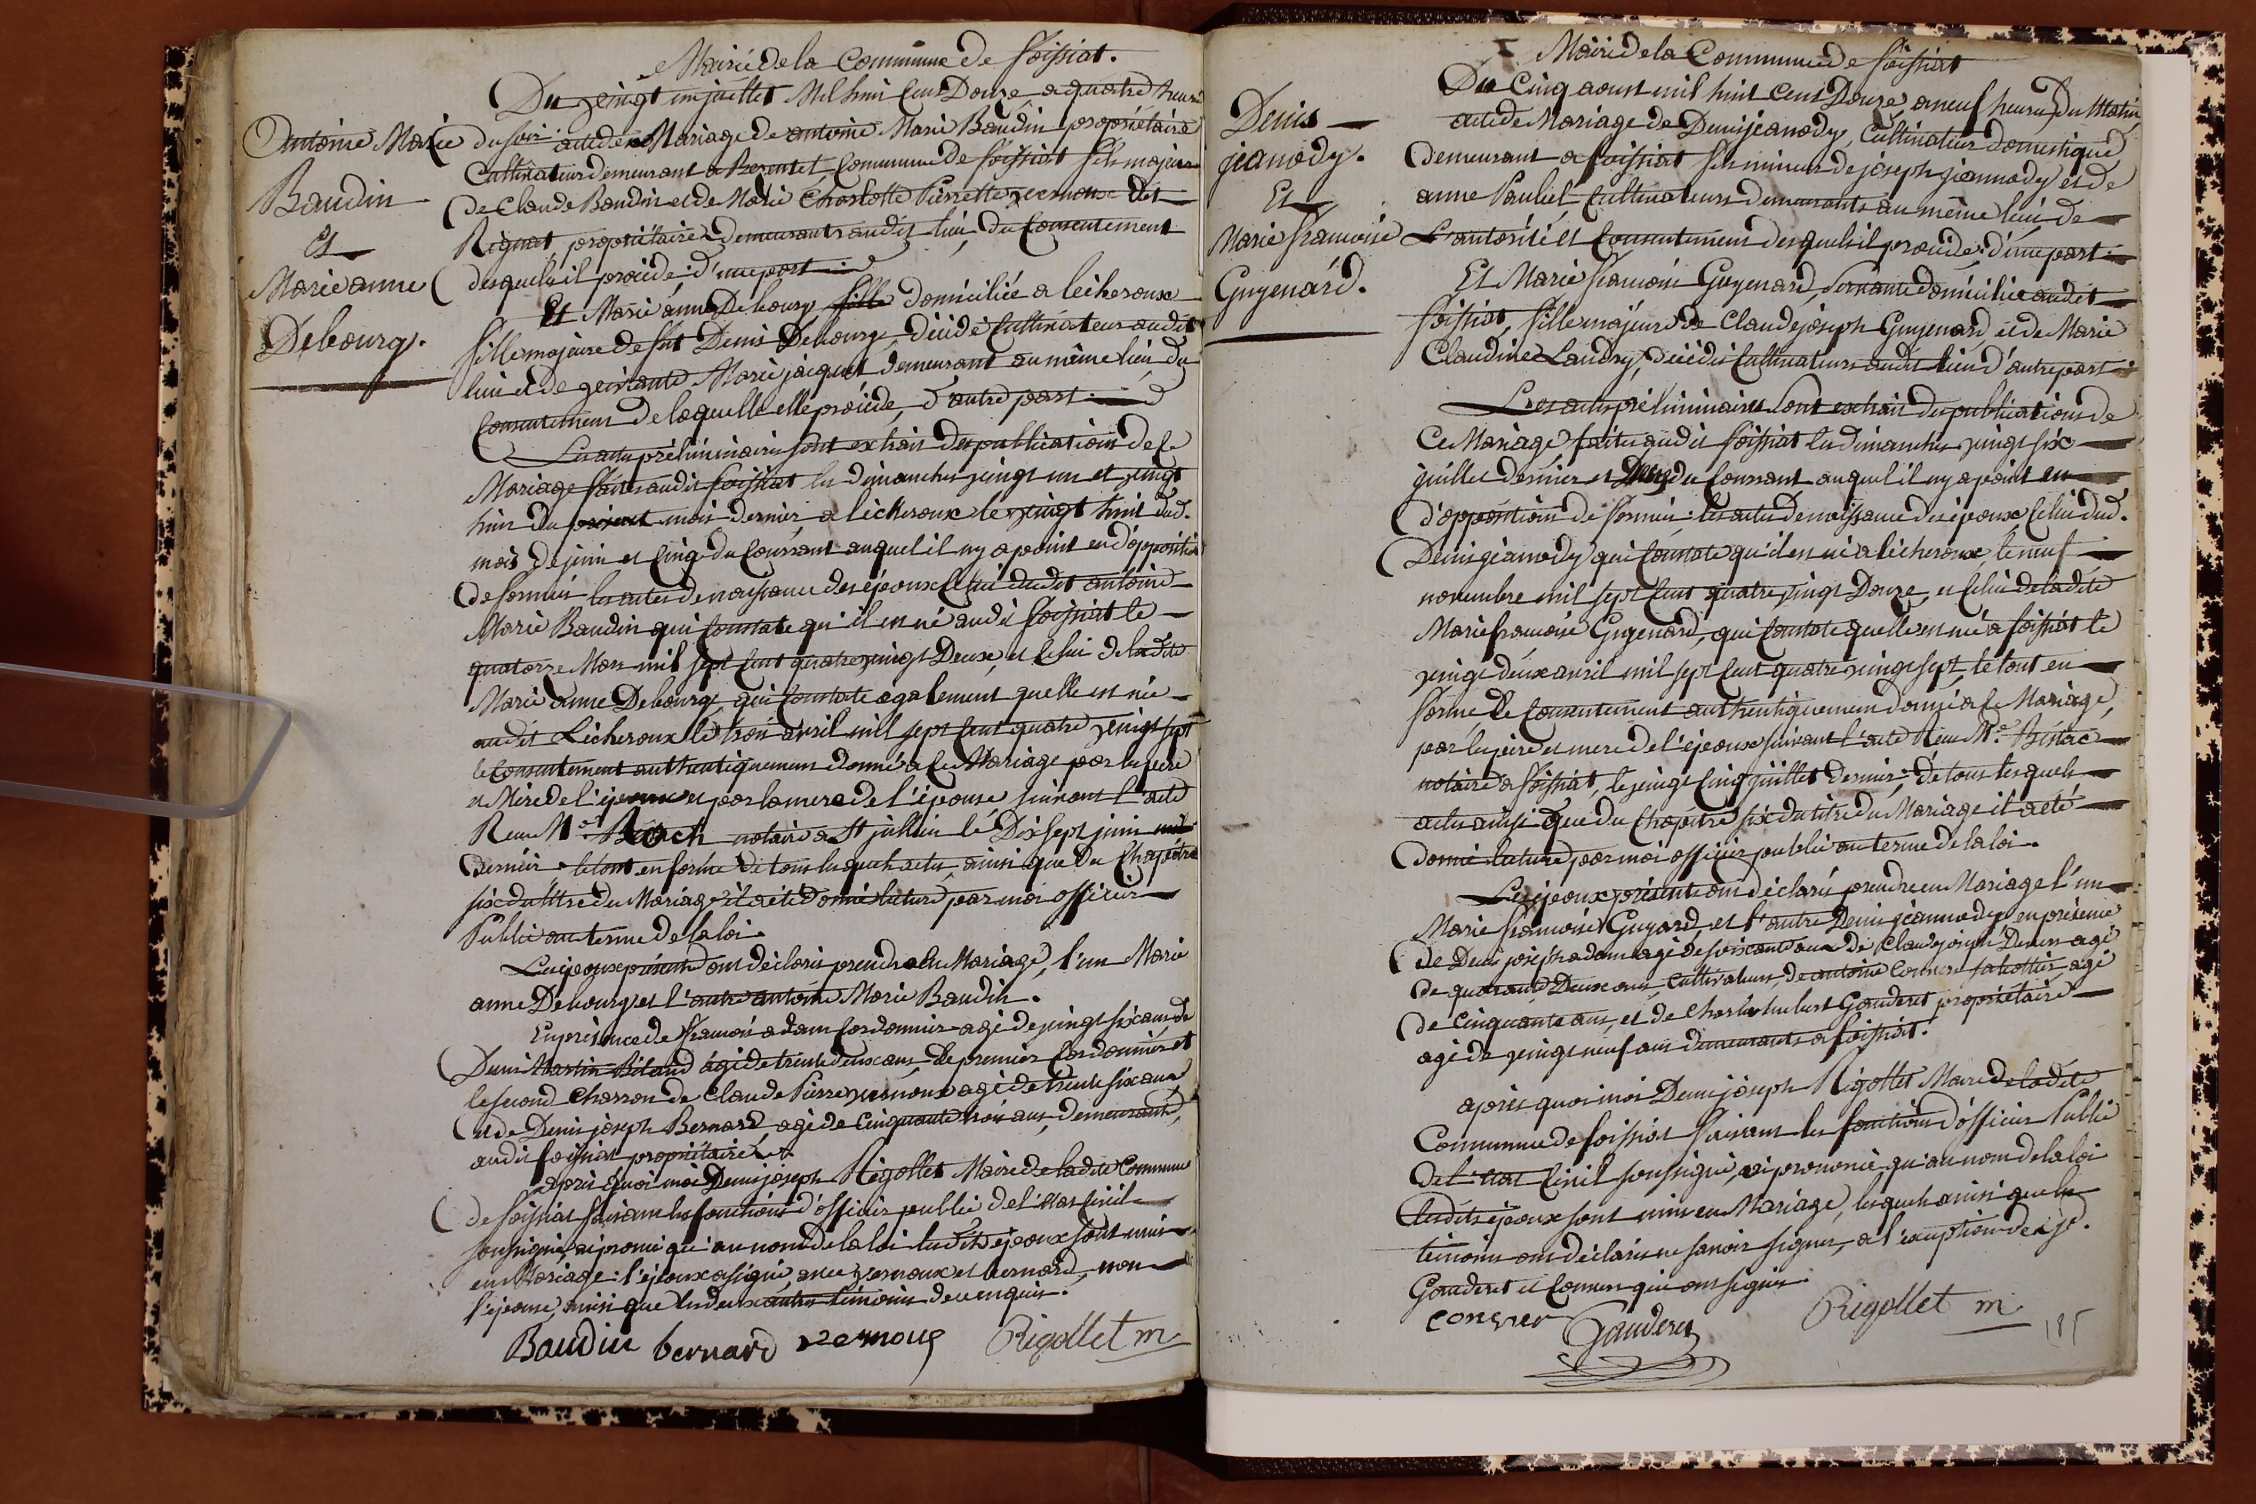 Mairie de la Commune de foissiat.
Du vingt un juillet Mil huit Cent Douze, a quatre heures
du soir. acte de Mariage de antoine Marie Baudin propriétaire
Cultivateur demeurant a Commune de foissiat fils majeur
de Claude Baudin et de Marie Charlotte Pierrette vermoux dit
Rignat, propriétaires demeurants audit lieu, du Consentement
desquels il procède, d'une part
Antoine Marie
Baudin
Et
Marie anne
Debourg.
Et Marie anne Debourg fille domiciliée a lécheroux
fille majeure de fut Denis Debourg, décédé Cultivateur audit
lieu et de vivante Marie jacquet demeurant au même lieu, du
Consentement de laquelle elle procède, d'autre part
Les actes préliminaires sont extrait des publications de Ce
Mariage faites audit foissiat les dimanches vingt un et vingt
huit du présent mois dernier a lécheroux le vingt huit dud.
mois de juin et Cinq du Courrant auquel il ny a point eu d'opposition
de formée les actes de naissance des époux Celui dudit antoine
Marie Baudin qui Constate qu'il est né audit foissiat le
quatorze Mars mil sept Cent quatre vingt Deux, et Celui de ladite
Marie anne Debourg qui Constate également quelle est née
audit Lécheroux le trois avril mil sept Cent quatre vingt sept
le Consentement authentiquement donné a Ce Mariage par les père
et Mère de l'époux et par la mere de l'épouse suivant l'acte
Reçu Me. Roch notaire a St julien le Dix sept juin mil
dernier le tout en forme de tous lesquels actes, ainsi que du Chapitre
six du titre du Mariage il a été donné lecture par moi officier
Public au terme de la loi.
Les époux présents ont déclarés prendre en Mariage, l'un Marie
anne Debourg et l'autre antoine Marie Baudin.
En présence de françois adam Cordonnier agé de vingt six ans de
Denis Martin Bilaud agé de trente deux ans le premier Cordonnier et
le second Charron de Claude Pierre vermoux agé de trente six ans
et de Denis joseph Bernard agé de Cinquante trois ans, demeurants,
audit foissiat propriétaires.
après quoi moi Denis joseph Rigollet Maire de ladite Commune
de foissiat faisant les fonctions d'officier public de l'état Civil
soussigné, ai prononcé qu'au nom de la loi lesdits époux sont unis
en Mariage : l'époux a signé avec vermoux et bernard, non
l'épouse, ainsi que les deux autres témoins de ce enquis.
Baudin bernard vermoux Rigollet m
Mairie de la Commune de foissiat
Du Cinq aoust mil huit Cent Douze, a neuf heures Du Matin
acte de Mariage de Denis jeanody, Cultivateur domestique
demeurant a foissiat fils mineur de joseph jeannody et de
anne Pauliet Cultivateurs demeurants au même lieu de
L'autorité et Consentement desquels il procède, d'une part
Denis
jeanody.
Et
Marie françoise
Guyenard.
Et Marie françoise Guyenard, Servante domiciliée audit
foissiat, fille majeure de Claude joseph Guyenard, et de Marie
Claudine Landry, décédés Cultivateurs audit lieu d'autre part
Les actes préliminaires sont extrait des publications de
Ce Mariage, faites audit foissiat les dimanches vingt six
juillet dernier et Deux du Courrant auquel il ny a point eu
d'opposition de formée : les actes de naissance des époux, Celui dud.
Denis jeanody qui Constate qu'il est né a lécheroux le neuf
novembre mil sept Cent quatre vingt Douze, et Celui de ladite
Marie françoise Guyenard, qui Constate quelle est née a foissiat le
vingt deux avril mil sept Cent quatre vingt sept, le tout en
forme le Consentement authentiquement donné a Ce Mariage,
par les père et mere de l'époux suivant l'acte Reçu Me.
notaire a foissiat, le vingt Cinq juillet dernier : de tous lesquels
actes ainsi que du Chapitre six du titre du Mariage il a été
donné lecture par moi officier public au terme de la loi.
Les époux présents ont déclarés prendre en Mariage l'un
Marie françoise Guyard, et l'autre Denis jeannody en présence
de Denis joseph adam agé de soixante ans de Claude joseph agé
de quarante Deux ans, Cultivateurs, de antoine Convert sabottier agé
de Cinquante ans, et de Charles Gauderet propriétaire
agé de vingt neuf ans demeurants a foissiat.
après quoi moi Denis joseph Rigollet Maire de ladite
Commune de foissiat faisant les fonctions d'officier Public
de l'état Civil soussigné, ai prononcé qu'au nom de la loi
lesdits époux sont unis en Mariage, lesquels ainsi que les
témoins ont déclarés ne savoir signer, a l'exception desd.
Gauderet et Convert qui ont signés
Convert Gauderet Rigollet m
185